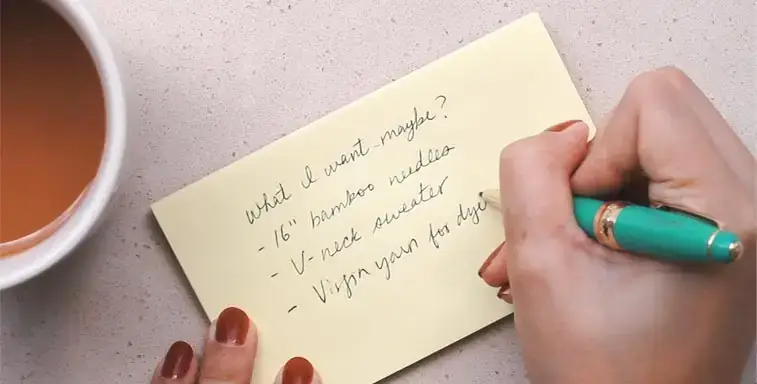 What I want..maybe?
- 16" bamboo needles
- V-neck sweater
- Virgin yarn for dye